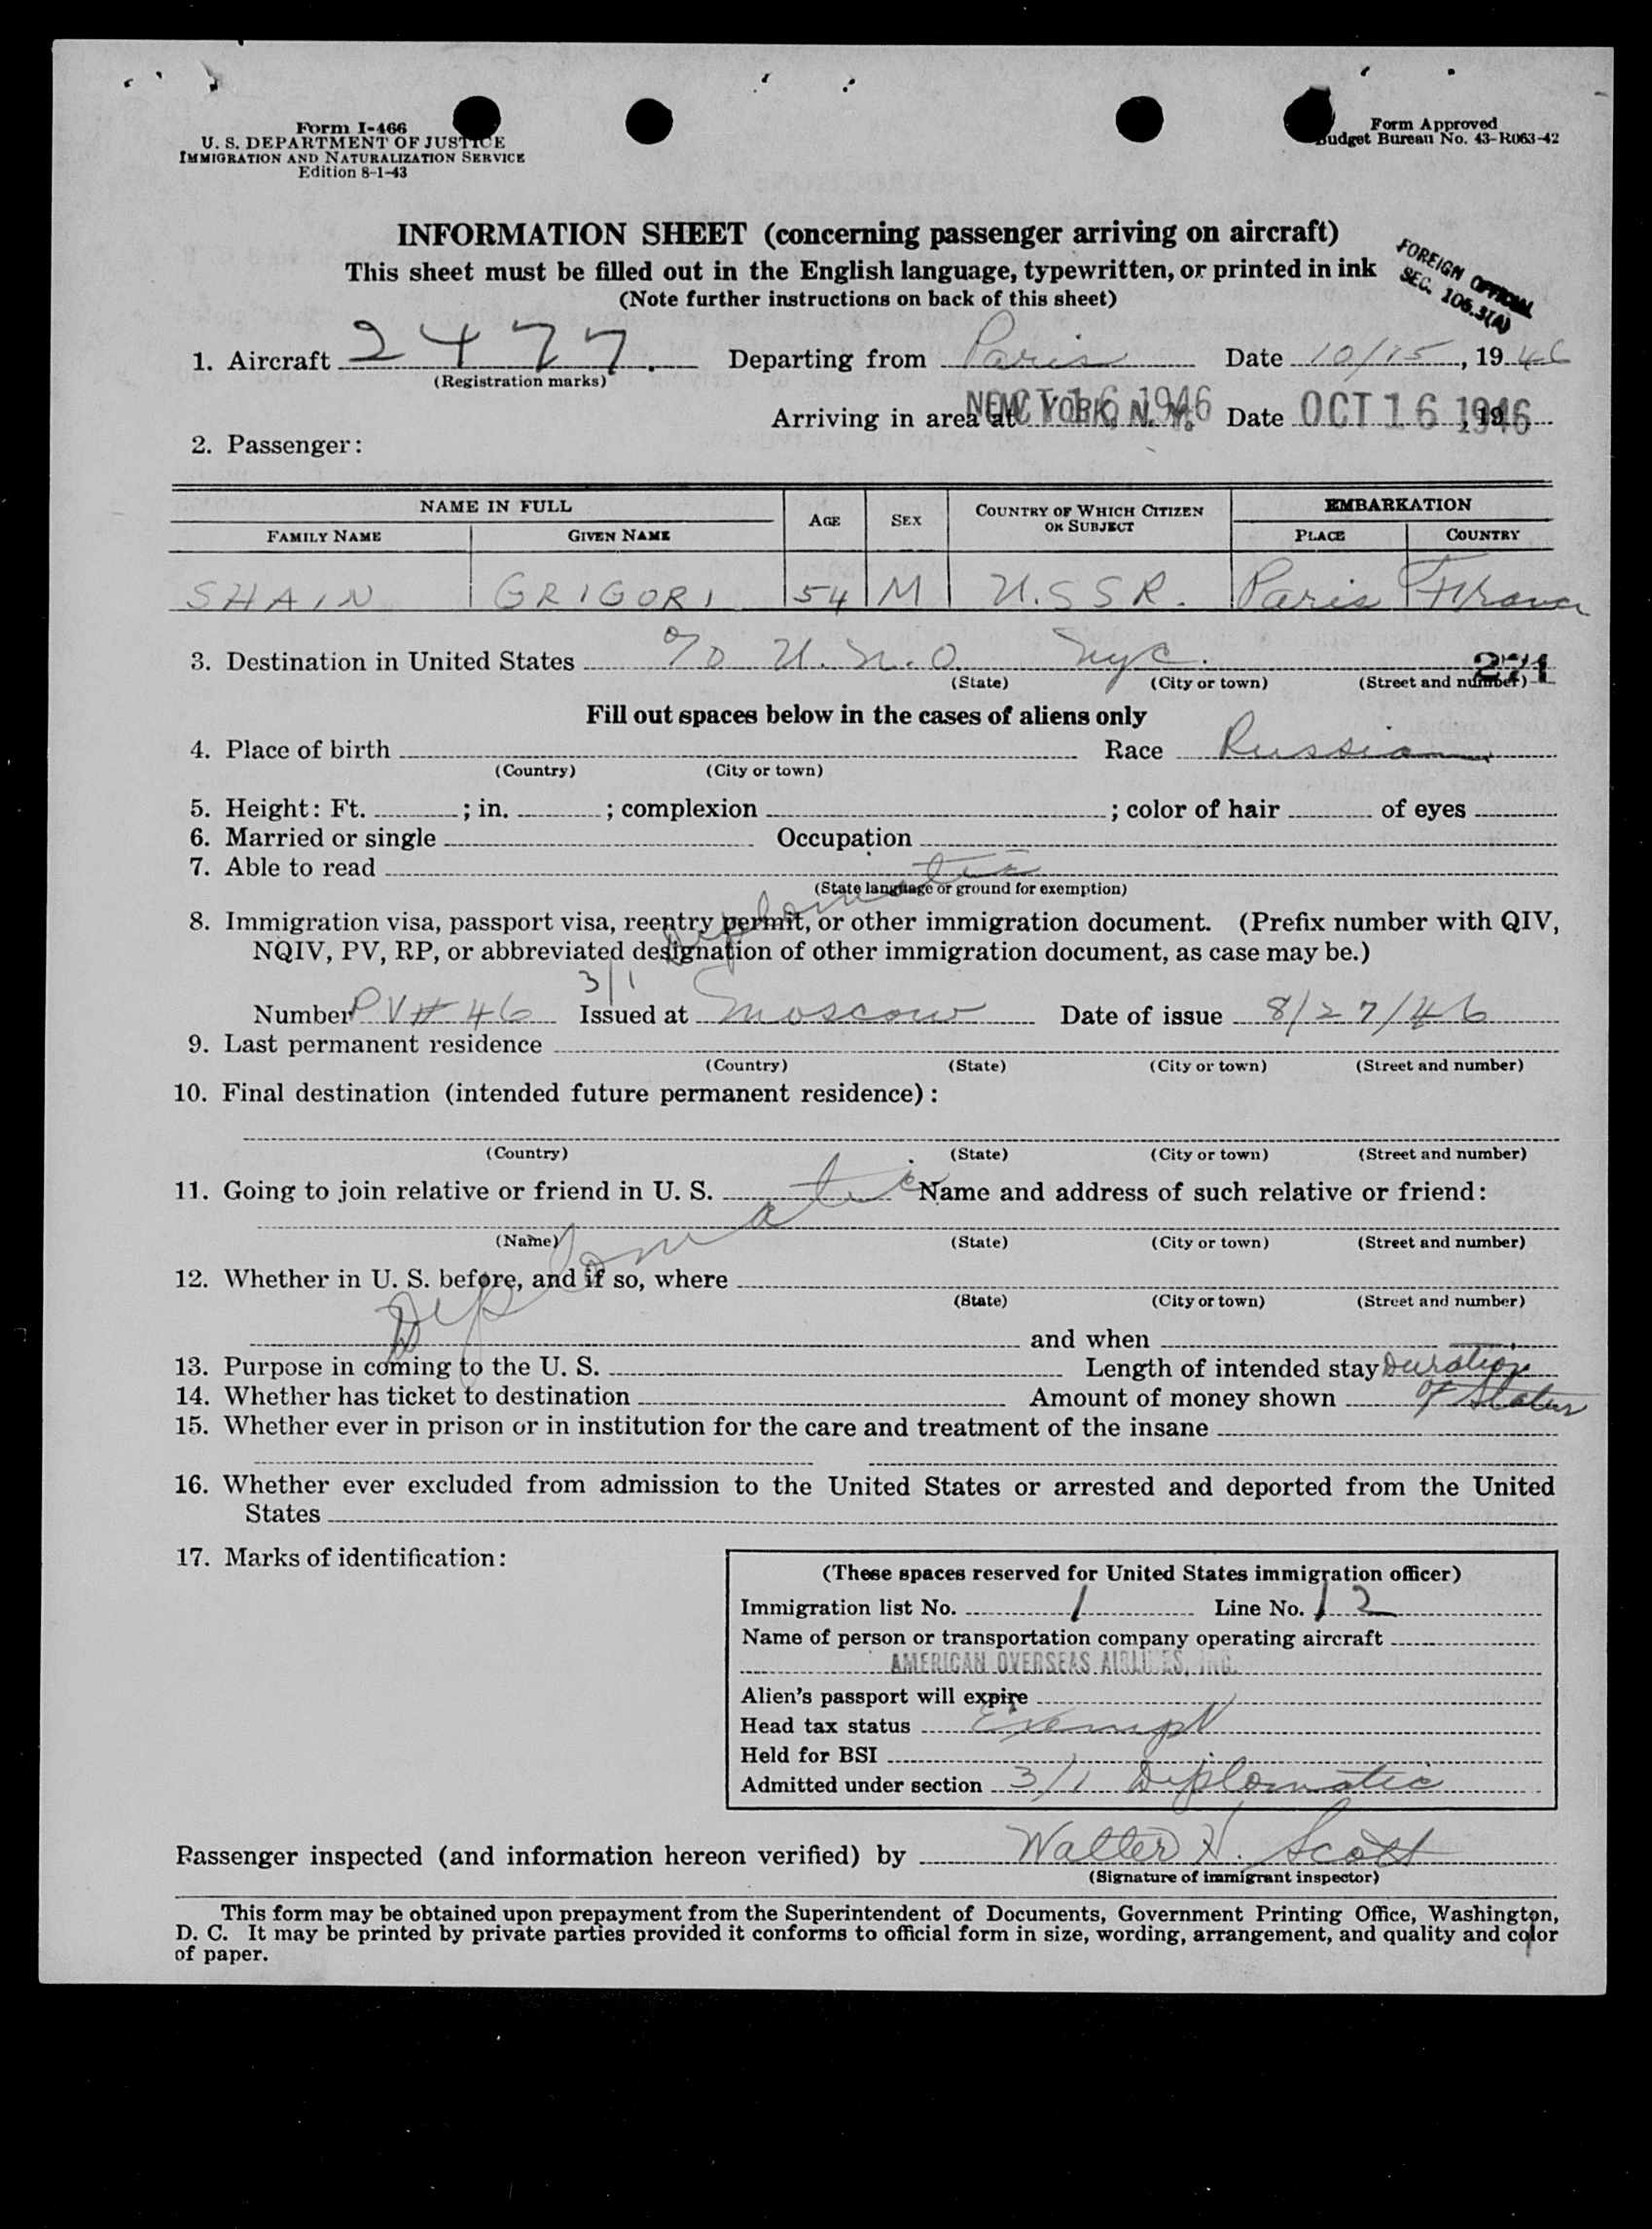 Form I-466
U. S. DEPARTMENT OF JUSTICE
IMMIGRATION AND NATURALIZATION SERVICE
Edition 8-1-43
Form Approved
Budget Bureau No. 43-R063-42
INFORMATION SHEET (concerning passenger arriving on aircraft)
This sheet must be filled out in the English language, typewritten, or printed in ink
(Note further instructions on back of this sheet)
FOREIGN OFFICIAL
SEC. 106.3(A)
1. Aircraft 2477. Departing from Paris Date 10/15, 1946
(Registration marks)
Arriving in area at NEW YORK, N. Y. OCT 16 1946 Date OCT 16 1946, 19
2. Passenger:
NAME IN FULL AGE SEX COUNTRY OF WHICH CITIZEN OR SUBJECT EMBARKATION
FAMILY NAME GIVEN NAME PLACE COUNTRY
SHAIN GRIGORI 54 M U.S S R. Paris France
3. Destination in United States c/o U.N.O. NYC. 271
(State) (City or town) (Street and number)
Fill out spaces below in the cases of aliens only
4. Place of birth Race Russian
(Country) (City or town)
5. Height: Ft. ; in. ; complexion ; color of hair of eyes
6. Married or single Occupation
7. Able to read
(State language or ground for exemption)
Diplomatic
8. Immigration visa, passport visa, reentry permit, or other immigration document. (Prefix number with QIV,
NQIV, PV, RP, or abbreviated designation of other immigration document, as case may be.)
3/1
Number PV# 46 Issued at Moscow Date of issue 8/27/46
9. Last permanent residence
(Country) (State) (City or town) (Street and number)
10. Final destination (intended future permanent residence):
(Country) (State) (City or town) (Street and number)
11. Going to join relative or friend in U. S. Name and address of such relative or friend:
(Name) (State) (City or town) (Street and number)
Diplomatic
12. Whether in U. S. before, and if so, where
(State) (City or town) (Street and number)
and when
13. Purpose in coming to the U. S. Length of intended stay Duration
14. Whether has ticket to destination Amount of money shown of Status
15. Whether ever in prison or in institution for the care and treatment of the insane
16. Whether ever excluded from admission to the United States or arrested and deported from the United
States
17. Marks of identification:
(These spaces reserved for United States immigration officer)
Immigration list No. 1 Line No. 12
Name of person or transportation company operating aircraft
AMERICAN OVERSEAS AIRLINES, INC.
Alien's passport will expire
Head tax status Exempt
Held for BSI
Admitted under section 3/1 Diplomatic
Passenger inspected (and information hereon verified) by Walter H. Scott
(Signature of immigrant inspector)
This form may be obtained upon prepayment from the Superintendent of Documents, Government Printing Office, Washington,
D. C. It may be printed by private parties provided it conforms to official form in size, wording, arrangement, and quality and color
of paper.